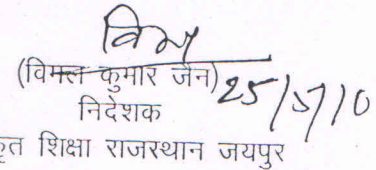 विमल
(विमल कुमार जैन)
25/5/10
निदेशक
कृत शिक्षा राजस्थान जयपुर